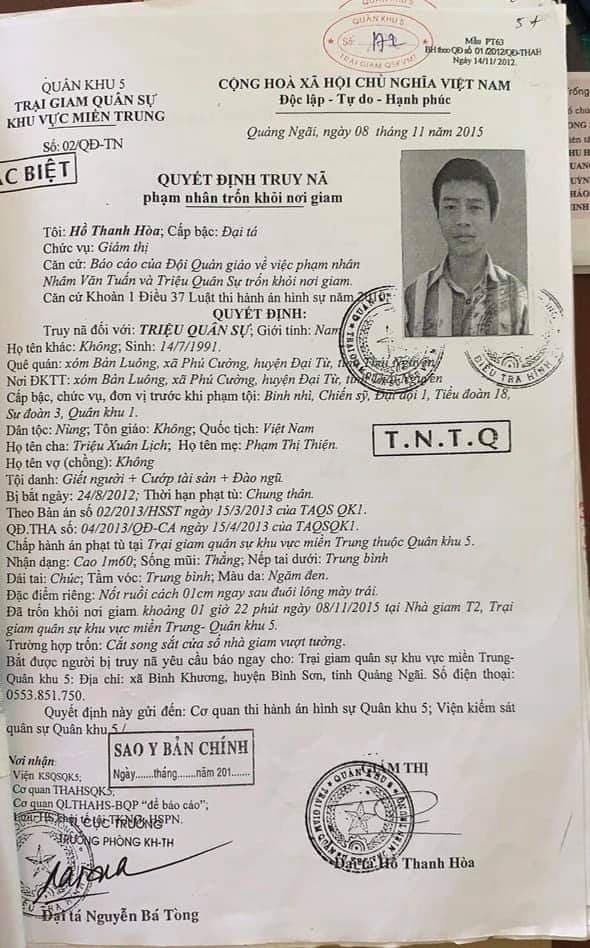 QUÂN KHU 5
Số: 172
TRẠI GIAM QSKVMT
5+
Mẫu PT63
BH theo QĐ số 01/2012/QĐ-THAH
Ngày 14/11/2012.
QUÂN KHU 5
TRẠI GIAM QUÂN SỰ
KHU VỰC MIỀN TRUNG
Số: 02/QĐ-TN
CỘNG HOÀ XÃ HỘI CHỦ NGHĨA VIỆT NAM
Độc lập - Tự do - Hạnh phúc
Quảng Ngãi, ngày 08 tháng 11 năm 2015
ẶC BIỆT
QUYẾT ĐỊNH TRUY NÃ
phạm nhân trốn khỏi nơi giam
Tôi: Hồ Thanh Hòa; Cấp bậc: Đại tá
Chức vụ: Giám thị
Căn cứ: Báo cáo của Đội Quản giáo về việc phạm nhân
Nhâm Văn Tuấn và Triệu Quân Sự trốn khỏi nơi giam.
Căn cứ Khoản 1 Điều 37 Luật thi hành án hình sự năm
QUYẾT ĐỊNH:
Truy nã đối với: TRIỆU QUÂN SỰ; Giới tính: Nam
Họ tên khác: Không; Sinh: 14/7/1991.
Quê quán: xóm Bản Luông, xã Phú Cường, huyện Đại Từ, tỉnh Thái Nguyên
Nơi ĐKTT: xóm Bản Luông, xã Phú Cường, huyện Đại Từ, tỉnh Thái Nguyên
Cấp bậc, chức vụ, đơn vị trước khi phạm tội: Binh nhì, Chiến sỹ, Đại đội 1, Tiểu đoàn 18,
Sư đoàn 3, Quân khu 1.
Dân tộc: Nùng; Tôn giáo: Không; Quốc tịch: Việt Nam
T.N.T.Q
Họ tên cha: Triệu Xuân Lịch; Họ tên mẹ: Phạm Thị Thiện.
Họ tên vợ (chồng): Không
Tội danh: Giết người + Cướp tài sản + Đào ngũ.
Bị bắt ngày: 24/8/2012; Thời hạn phạt tù: Chung thân.
Theo Bản án số 02/2013/HSST ngày 15/3/2013 của TAQS QK1.
QĐ.THA số: 04/2013/QĐ-CA ngày 15/4/2013 của TAQSQK1.
Chấp hành án phạt tù tại Trại giam quân sự khu vực miền Trung thuộc Quân khu 5.
Nhận dạng: Cao 1m60; Sống mũi: Thẳng; Nếp tai dưới: Trung bình
Dái tai: Chúc; Tầm vóc: Trung bình; Màu da: Ngăm đen.
Đặc điểm riêng: Nốt ruồi cách 01cm ngay sau đuôi lông mày trải.
Đã trốn khỏi nơi giam khoảng 01 giờ 22 phút ngày 08/11/2015 tại Nhà giam T2, Trại
giam quân sự khu vực miền Trung- Quân khu 5.
Trường hợp trốn: Cắt song sắt cửa sổ nhà giam vượt tường.
Bắt được người bị truy nã yêu cầu báo ngay cho: Trại giam quân sự khu vực miền Trung-
Quân khu 5: Địa chỉ: xã Bình Khương, huyện Bình Sơn, tỉnh Quảng Ngãi. Số điện thoại:
0553.851.750.
Quyết định này gửi đến: Cơ quan thi hành án hình sự Quân khu 5; Viện kiểm sát
quân sự Quân khu 5./
SAO Y BẢN CHÍNH
Ngày.......tháng.......năm 201.......
Nơi nhận:
Viện KSQSQK5;
Cơ quan THAHSQK5;
Cơ quan QLTHAHS-BQP "để báo cáo";
TL CỤC TRƯỞNG
TRƯỞNG PHÒNG KH-TH
Đại tá Nguyễn Bá Tòng
GIÁM THỊ
Đại tá Hồ Thanh Hòa